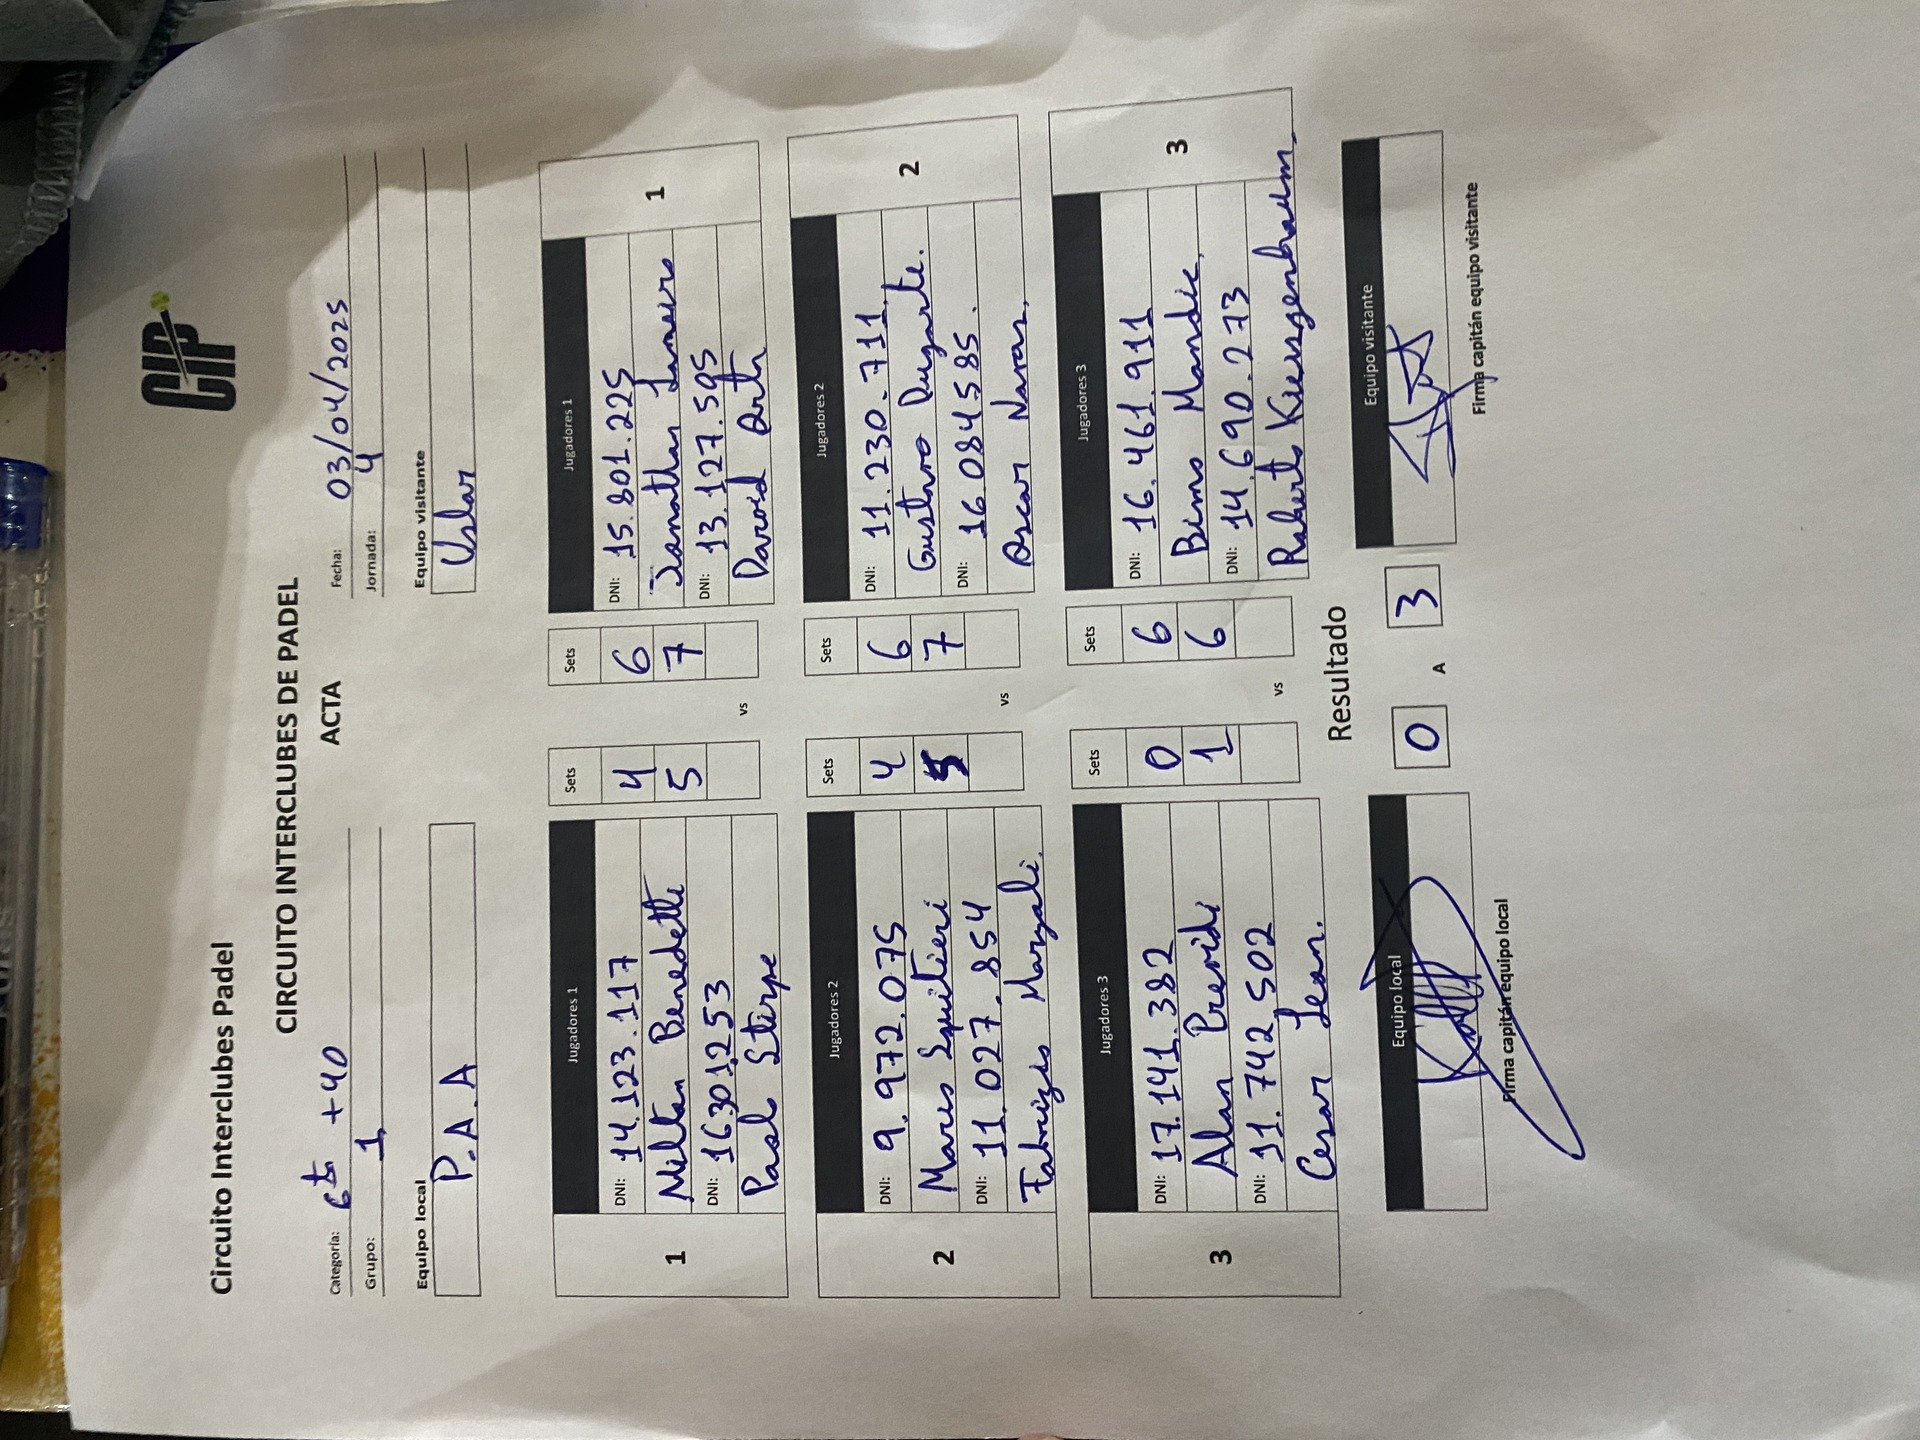 CIP
Circuito Interclubes Padel
CIRCUITO INTERCLUBES DE PADEL
ACTA
Categoría: 6ta +40
Fecha: 03/04/2025
Grupo: 1
Jornada: 4
Equipo local
Equipo visitante
P.A.A
Uslar
Jugadores 1 Sets Sets Jugadores 1
DNI: 14.123.117 4 6 DNI: 15.801.225
1 Miltan Benedetti 5 7 Jonathan Lameiro 1
DNI: 16301253 DNI: 13.127.595
Paolo Stirpe vs David
Jugadores 2 Sets Sets Jugadores 2
DNI: 9.972.075 4 6 DNI: 11.230.711
2 Marco Squitieri 5 7 Gustavo Dugarte. 2
DNI: 11.027.854 DNI: 16.084585.
Fabrizio Marzali. vs Oscar Navas.
Jugadores 3 Sets Sets Jugadores 3
DNI: 17.141.382 0 6 DNI: 16.461.911
3 Alan Previdi 1 6 Bimo Mandic. 3
DNI: 11.742.502 DNI: 14.690.273
Cesar Lean. vs Roberto
Resultado
Equipo local 0 A 3 Equipo visitante
Firma capitán equipo local
Firma capitán equipo visitante